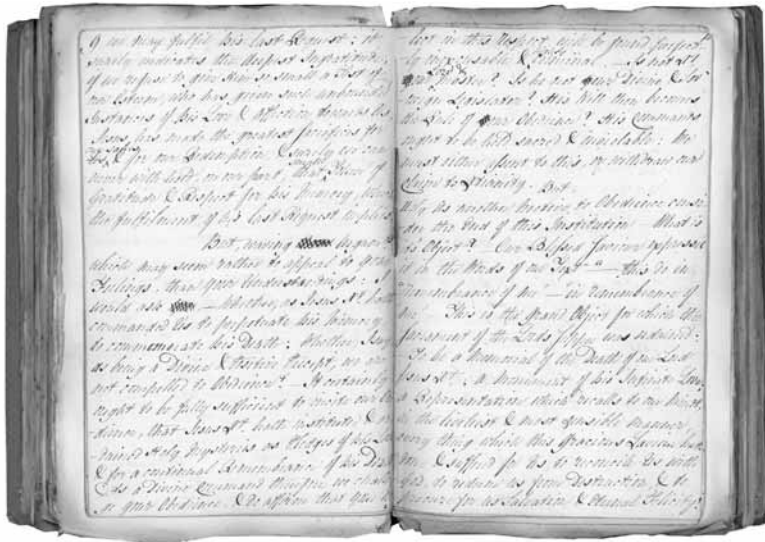 9 we may fulfil his last Request: it
surely indicates the deepest Ingratitude,
if we refuse to give Him so small a Test of
our Esteem, who has given such unbounded
Instances of his Love & affection towards us
Jesus has made the greatest sacrifices for
& for our Redemption & surely we can
never with hold, on our part, that of
Gratitude & Respect for his Memory, which
the fulfilment of his last Request implies
But, waving
which may seem rather to appeal to your
Feelings, than your Understandings: I
would ask — whether, as Jesus Xt. hath
commanded us to perpetuate his Memory
to commemorate his Death: Whether I say
as being a Divine & Positive Precept, we are
not compelled to Obedience? — It certainly
ought to be fully sufficient to incite our
that Jesus Xt. hath instituted &
Holy Mysteries as Pledges of his
& for a continual Remembrance of his Death
As a Divine Command therefore we
your Obedience. & to affirm that you
in this Respect, will be
& Criminal — Is not Xt.
Master? Is he not your Divine &
Legislator? His Will then becomes
the Rule of your Obedience? His Commands
ought to be held sacred & inviolable: We
must either assent to this, or withdraw our
claim to . But
As another Motive to Obedience consi-
der the End of this Institution — What is
its Object? — Our Blessed Saviour expresses
it in the Words of our Text — "this do in
remembrance of me" — in remembrance of
me. This is the grand Object for which the
Sacrament of the Lords Supper was ordained:
To be a Memorial of the Death of our Lord
Jesus Xt.: a Monument of his Infinite Love:
a Representation which recalls to our Minds
in the liveliest & most sensible manner,
every thing which this Gracious Saviour hath
& suffered for us to reconcile us with
God, to redeem us from Destruction, & to
procure for us Salvation & Eternal Felicity: